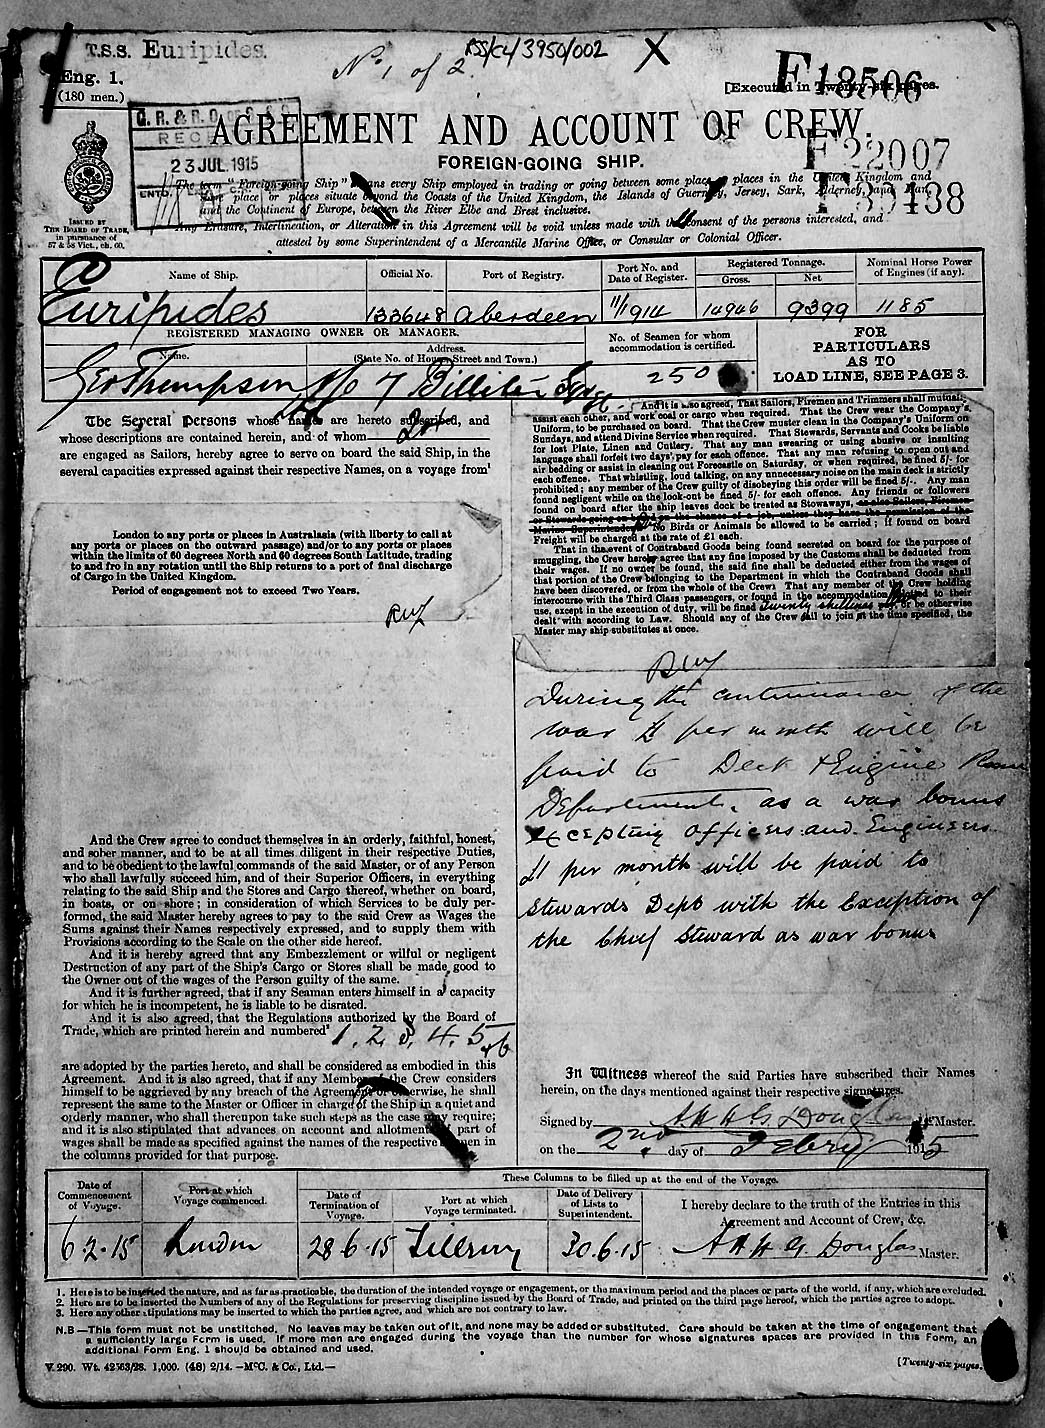 T.S.S. Euripides.
No. 1 of 2
RSS/CL/3950/002
X
Eng. 1.
(180 men.)
[Executed in Twenty-six pages.
F 18506
F 22007
F 39438
REC
23 JUL 1915
AGREEMENT AND ACCOUNT OF CREW.
FOREIGN-GOING SHIP.
ISSUED BY
THE BOARD OF TRADE,
in pursuance of
57 & 58 Vict., ch. 60.
The term "Foreign-going Ship" means every Ship employed in trading or going between some place or places in the United Kingdom and
some place or places situate beyond the Coasts of the United Kingdom, the Islands of Guernsey, Jersey, Sark, Alderney, and Man,
and the Continent of Europe, between the River Elbe and Brest inclusive.
Any Erasure, Interlineation, or Alteration in this Agreement will be void unless made with the consent of the persons interested, and
attested by some Superintendent of a Mercantile Marine Office, or Consular or Colonial Officer.
Name of Ship. Official No. Port of Registry. Port No. and Date of Register. Registered Tonnage. Gross. Net Nominal Horse Power of Engines (if any).
Euripides 133648 Aberdeen 11/1914 14946 9399 1185
REGISTERED MANAGING OWNER OR MANAGER.
Name. Address.
(State No. of House, Street and Town.)
No. of Seamen for whom
accommodation is certified.
FOR
PARTICULARS
AS TO
LOAD LINE, SEE PAGE 3.
Geo Thompson 7 Billiter Sqre
250
The Several Persons whose names are hereto subscribed, and
whose descriptions are contained herein, and of whom
are engaged as Sailors, hereby agree to serve on board the said Ship, in the
several capacities expressed against their respective Names, on a voyage from¹
London to any ports or places in Australasia (with liberty to call at
any ports or places on the outward passage) and/or to any ports or places
within the limits of 60 degrees North and 60 degrees South Latitude, trading
to and fro in any rotation until the Ship returns to a port of final discharge
of Cargo in the United Kingdom.
Period of engagement not to exceed Two Years.
And the Crew agree to conduct themselves in an orderly, faithful, honest,
and sober manner, and to be at all times diligent in their respective Duties,
and to be obedient to the lawful commands of the said Master, or of any Person
who shall lawfully succeed him, and of their Superior Officers, in everything
relating to the said Ship and the Stores and Cargo thereof, whether on board,
in boats, or on shore; in consideration of which Services to be duly per-
formed, the said Master hereby agrees to pay to the said Crew as Wages the
Sums against their Names respectively expressed, and to supply them with
Provisions according to the Scale on the other side hereof.
And it is hereby agreed that any Embezzlement or wilful or negligent
Destruction of any part of the Ship's Cargo or Stores shall be made good to
the Owner out of the wages of the Person guilty of the same.
And it is further agreed, that if any Seaman enters himself in a capacity
for which he is incompetent, he is liable to be disrated.
And it is also agreed, that the Regulations authorized by the Board of
Trade, which are printed herein and numbered² 1. 2. 3. 4. 5 & 6
are adopted by the parties hereto, and shall be considered as embodied in this
Agreement. And it is also agreed, that if any Member of the Crew considers
himself to be aggrieved by any breach of the Agreement or otherwise, he shall
represent the same to the Master or Officer in charge of the Ship in a quiet and
orderly manner, who shall thereupon take such steps as the case may require;
and it is also stipulated that advances on account and allotment of part of
wages shall be made as specified against the names of the respective Seamen in
the columns provided for that purpose.
And it is also agreed, That Sailors, Firemen and Trimmers shall mutually
assist each other, and work coal or cargo when required. That the Crew wear the Company's
Uniform, to be purchased on board. That the Crew must clean in the Company's Uniform on
Sundays, and attend Divine Service when required. That Stewards, Servants and Cooks be liable
for lost Plate, Linen and Cutlery. That any man swearing or using abusive or insulting
language shall forfeit two days' pay for each offence. That any man refusing to open out and
air bedding or assist in cleaning out Forecastle on Saturday, or when required, be fined 5/- for
each offence. That whistling, loud talking, or any unnecessary noise on the main deck is strictly
prohibited; any member of the Crew guilty of disobeying this order will be fined 5/-. Any man
found negligent while on the look-out be fined 5/- for each offence. Any friends or followers
found on board after the ship leaves dock be treated as Stowaways, as also Sailors, Firemen
or Stewards going on board on the chance of a job, unless they have the permission of the
Marine Superintendent. No Birds or Animals be allowed to be carried; if found on board
Freight will be charged at the rate of £1 each.
That in the event of Contraband Goods being found secreted on board for the purpose of
smuggling, the Crew hereby agree that any fine imposed by the Customs shall be deducted from
their wages. If no owner be found, the said fine shall be deducted either from the wages of
that portion of the Crew belonging to the Department in which the Contraband Goods shall
have been discovered, or from the whole of the Crew. That any member of the Crew holding
intercourse with the Third Class passengers, or found in the accommodation allotted to their
use, except in the execution of duty, will be fined twenty shillings or be otherwise
dealt with according to Law. Should any of the Crew fail to join at the time specified, the
Master may ship substitutes at once.
During the continuance of the
war £1 per month will be
paid to Deck & Engine Room
Departments as a war bonus
excepting officers and Engineers
£1 per month will be paid to
Stewards Dept with the Exception of
the Chief Steward as war bonus
In Witness whereof the said Parties have subscribed their Names
herein, on the days mentioned against their respective signatures.
Signed by A H H G Douglas Master.
on the 2nd day of Febry 1915
These Columns to be filled up at the end of the Voyage.
Date of Commencement of Voyage. Port at which Voyage commenced. Date of Termination of Voyage. Port at which Voyage terminated. Date of Delivery of Lists to Superintendent.
I hereby declare to the truth of the Entries in this
Agreement and Account of Crew, &c.
6.2.15 London 28.6.15 Tilbury 30.6.15 A H H G Douglas Master.
1. Here is to be inserted the nature, and as far as practicable, the duration of the intended voyage or engagement, or the maximum period and the places or parts of the world, if any, which are excluded.
2. Here are to be inserted the Numbers of any of the Regulations for preserving discipline issued by the Board of Trade, and printed on the third page hereof, which the parties agree to adopt.
3. Here any other stipulations may be inserted to which the parties agree, and which are not contrary to law.
N.B.—This form must not be unstitched. No leaves may be taken out of it, and none may be added or substituted. Care should be taken at the time of engagement that
a sufficiently large Form is used. If more men are engaged during the voyage than the number for whose signatures spaces are provided in this Form, an
additional Form Eng. 1 should be obtained and used.
V. 290. Wt. 42563/28. 1,000. (48) 2/14. —McC. & Co., Ltd.—
[Twenty-six pages.